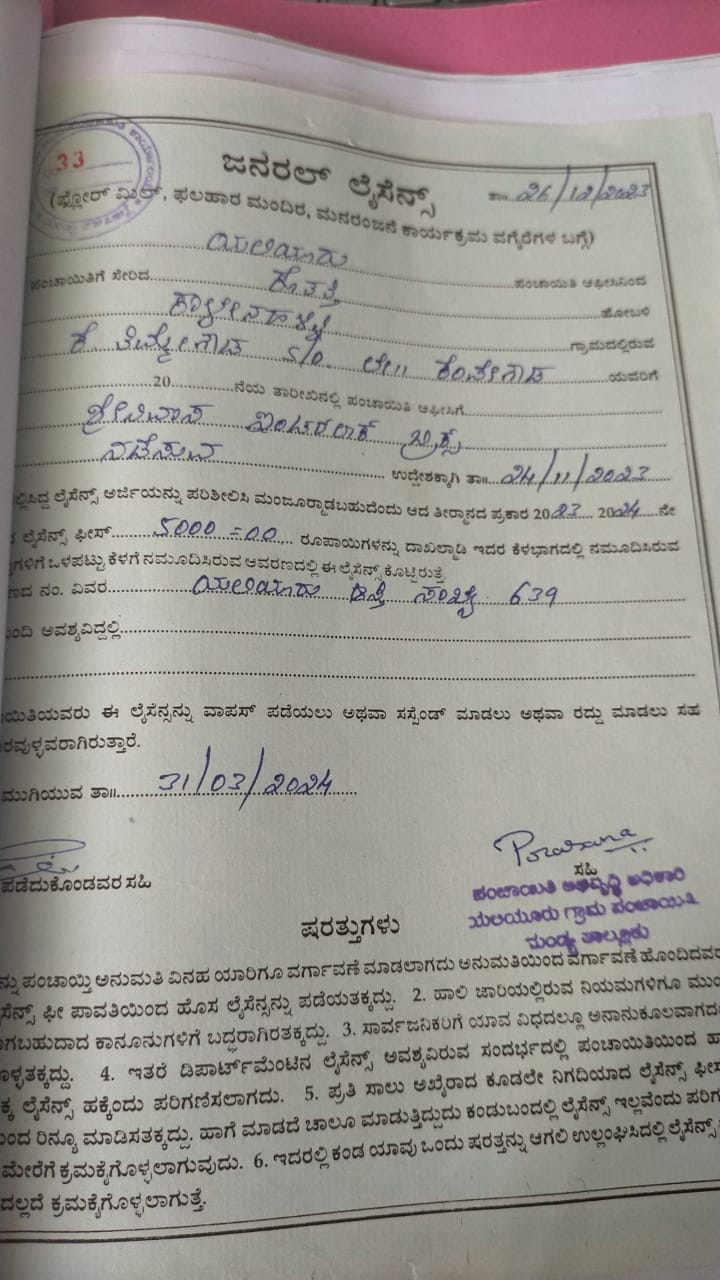 33
ಜನರಲ್ ಲೈಸೆನ್ಸ್
ತಾ॥ 26/12/2023
(ಫ್ಲೋರ್ ಮಿಲ್, ಫಲಹಾರ ಮಂದಿರ, ಮನರಂಜನೆ ಕಾರ್ಯಕ್ರಮ ವಗೈರೆಗಳ ಬಗ್ಗೆ)
ಯಲಿಯೂರು ಪಂಚಾಯಿತಿ ಆಫೀಸಿನಿಂದ
ಪಂಚಾಯಿತಿಗೆ ಸೇರಿದ ಕೊತತ್ತಿ ಹೋಬಳಿ
ಗ್ರಾಮದಲ್ಲಿರುವ
ಕೆ. ತಿಮ್ಮೇಗೌಡ S/o. ಲೇ॥ ಕೆಂಪೇಗೌಡ ಯವರಿಗೆ
20 ನೆಯ ತಾರೀಖಿನಲ್ಲಿ ಪಂಚಾಯಿತಿ ಆಫೀಸಿಗೆ
ಶ್ರೀನಿವಾಸ ಇಂಟರಲಾಕ್ ಬ್ರಿಕ್ಸ್
ನಡೆಸುವ ಉದ್ದೇಶಕ್ಕಾಗಿ ತಾ॥ 24/11/2023
ಲ್ಲಿಸಿದ್ದ ಲೈಸೆನ್ಸ್ ಅರ್ಜಿಯನ್ನು ಪರಿಶೀಲಿಸಿ ಮಂಜೂರ್‍ಮಾಡಬಹುದೆಂದು ಆದ ತೀರ್ಮಾನದ ಪ್ರಕಾರ 2023 2024 ನೇ
ಲೈಸೆನ್ಸ್ ಫೀಸ್ 5000=00 ರೂಪಾಯಿಗಳನ್ನು ದಾಖಲ್ಮಾಡಿ ಇದರ ಕೆಳಭಾಗದಲ್ಲಿ ನಮೂದಿಸಿರುವ
ಗಳಿಗೆ ಒಳಪಟ್ಟು ಕೆಳಗೆ ನಮೂದಿಸಿರುವ ಆವರಣದಲ್ಲಿ ಈ ಲೈಸೆನ್ಸ್ ಕೊಟ್ಟಿರುತ್ತೆ
ಣದ ನಂ. ವಿವರ ಯಲಿಯೂರು ಆಸ್ತಿ ಸಂಖ್ಯೆ 639
ಂದಿ ಅವಶ್ಯವಿದ್ದಲ್ಲಿ
ಯಿತಿಯವರು ಈ ಲೈಸೆನ್ಸನ್ನು ವಾಪಸ್ ಪಡೆಯಲು ಅಥವಾ ಸಸ್ಪೆಂಡ್ ಮಾಡಲು ಅಥವಾ ರದ್ದು ಮಾಡಲು ಸಹ
ರವುಳ್ಳವರಾಗಿರುತ್ತಾರೆ.
ಮುಗಿಯುವ ತಾ॥ 31/03/2024
ಪಡೆದುಕೊಂಡವರ ಸಹಿ
ಸಹಿ
ಪಂಚಾಯಿತಿ ಅಭಿವೃದ್ಧಿ ಅಧಿಕಾರಿ
ಯಲಿಯೂರು ಗ್ರಾಮ ಪಂಚಾಯಿತಿ
ಮಂಡ್ಯ ತಾಲ್ಲೂಕು
ಷರತ್ತುಗಳು
ನ್ನು ಪಂಚಾಯ್ತಿ ಅನುಮತಿ ವಿನಹ ಯಾರಿಗೂ ವರ್ಗಾವಣೆ ಮಾಡಲಾಗದು ಅನುಮತಿಯಿಂದ ವರ್ಗಾವಣೆ ಹೊಂದಿದವರ
ಸೆನ್ಸ್ ಫೀ ಪಾವತಿಯಿಂದ ಹೊಸ ಲೈಸೆನ್ಸನ್ನು ಪಡೆಯತಕ್ಕದ್ದು. 2. ಹಾಲಿ ಜಾರಿಯಲ್ಲಿರುವ ನಿಯಮಗಳಿಗೂ ಮುಂ
ಗಬಹುದಾದ ಕಾನೂನುಗಳಿಗೆ ಬದ್ಧರಾಗಿರತಕ್ಕದ್ದು. 3. ಸಾರ್ವಜನಿಕರಿಗೆ ಯಾವ ವಿಧದಲ್ಲೂ ಅನಾನುಕೂಲವಾಗದ
ೊಳ್ಳತಕ್ಕದ್ದು. 4. ಇತರೆ ಡಿಪಾರ್ಟ್‌ಮೆಂಟಿನ ಲೈಸೆನ್ಸ್ ಅವಶ್ಯವಿರುವ ಸಂದರ್ಭದಲ್ಲಿ ಪಂಚಾಯಿತಿಯಿಂದ ಹ
ಕ್ಕ ಲೈಸೆನ್ಸ್ ಹಕ್ಕೆಂದು ಪರಿಗಣಿಸಲಾಗದು. 5. ಪ್ರತಿ ಸಾಲು ಅಖೈರಾದ ಕೂಡಲೇ ನಿಗದಿಯಾದ ಲೈಸೆನ್ಸ್ ಫೀಸ
ಂದ ರಿನ್ಯೂ ಮಾಡಿಸತಕ್ಕದ್ದು. ಹಾಗೆ ಮಾಡದೆ ಚಾಲೂ ಮಾಡುತ್ತಿದ್ದುದು ಕಂಡುಬಂದಲ್ಲಿ ಲೈಸೆನ್ಸ್ ಇಲ್ಲವೆಂದು ಪರಿಗ
ಮೇರೆಗೆ ಕ್ರಮಕೈಗೊಳ್ಳಲಾಗುವುದು. 6. ಇದರಲ್ಲಿ ಕಂಡ ಯಾವು ಒಂದು ಷರತ್ತನ್ನು ಆಗಲಿ ಉಲ್ಲಂಘಿಸಿದಲ್ಲಿ ಲೈಸೆನ್ಸ್
ದಲ್ಲದೆ ಕ್ರಮಕೈಗೊಳ್ಳಲಾಗುತ್ತೆ.